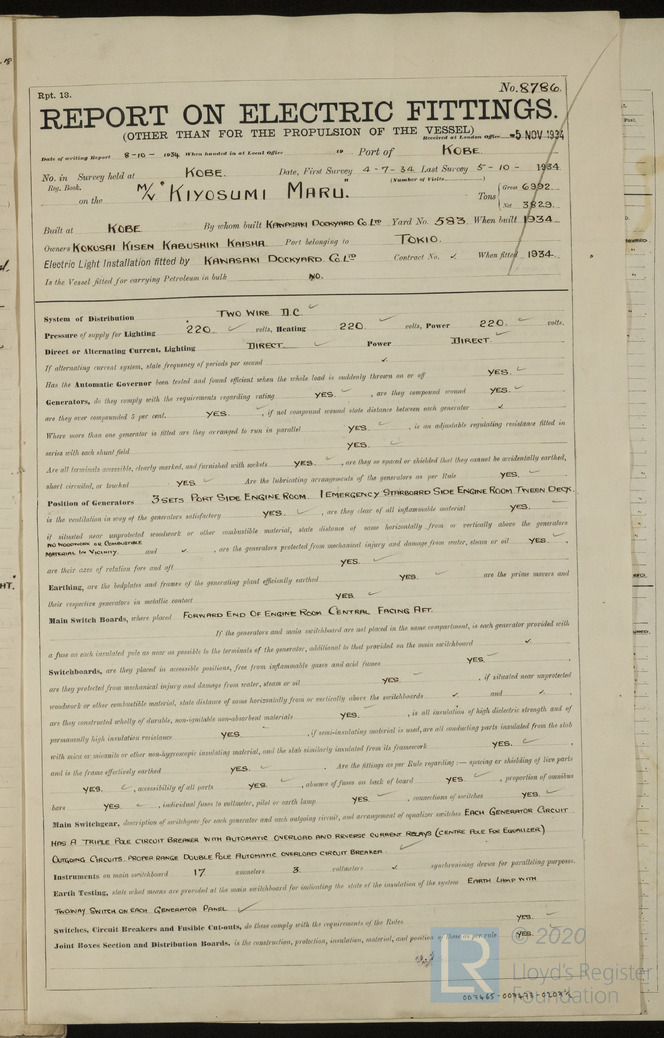 Rpt. 13.
No. 8786.
REPORT ON ELECTRIC FITTINGS.
(OTHER THAN FOR THE PROPULSION OF THE VESSEL)
Received at London Office -5 NOV 1934
Date of writing Report 8-10- 1934 When handed in at Local Office 19 Port of KOBE.
No. in Survey held at KOBE. Date, First Survey 4-7-34 Last Survey 5-10- 1934
Reg. Book. (Number of Visits )
on the M/V "KIYOSUMI MARU." Tons { Gross 6992. Net 3829.
Built at KOBE By whom built KAWASAKI DOCKYARD CO LTD Yard No. 583. When built 1934
Owners KOKUSAI KISEN KABUSHIKI KAISHA Port belonging to TOKIO.
Electric Light Installation fitted by KAWASAKI DOCKYARD CO LTD Contract No. ✓ When fitted 1934.
Is the Vessel fitted for carrying Petroleum in bulk NO.
System of Distribution TWO WIRE D.C. ✓
Pressure of supply for Lighting 220. ✓ volts, Heating 220. volts, Power 220. ✓ volts.
Direct or Alternating Current, Lighting DIRECT ✓ Power DIRECT ✓
If alternating current system, state frequency of periods per second ✓
Has the Automatic Governor been tested and found efficient when the whole load is suddenly thrown on or off YES. ✓
Generators, do they comply with the requirements regarding rating YES. ✓, are they compound wound YES. ✓
are they over compounded 5 per cent. YES. ✓, if not compound wound state distance between each generator ✓
Where more than one generator is fitted are they arranged to run in parallel YES. ✓, is an adjustable regulating resistance fitted in
series with each shunt field YES. ✓
Are all terminals accessible, clearly marked, and furnished with sockets YES. ✓, are they so spaced or shielded that they cannot be accidentally earthed,
short circuited, or touched YES. ✓ Are the lubricating arrangements of the generators as per Rule YES. ✓
Position of Generators 3 SETS PORT SIDE ENGINE ROOM. 1 EMERGENCY STARBOARD SIDE ENGINE ROOM TWEEN DECK.
is the ventilation in way of the generators satisfactory YES. ✓, are they clear of all inflammable material YES.
if situated near unprotected woodwork or other combustible material, state distance of same horizontally from or vertically above the generators
NO WOODWORK OR COMBUSTIBLE
MATERIAL IN VICINITY. and ✓, are the generators protected from mechanical injury and damage from water, steam or oil YES. ✓,
are their axes of rotation fore and aft YES. ✓
Earthing, are the bedplates and frames of the generating plant efficiently earthed YES. ✓ are the prime movers and
their respective generators in metallic contact YES. ✓
Main Switch Boards, where placed FORWARD END OF ENGINE ROOM CENTRAL FACING AFT.
If the generators and main switchboard are not placed in the same compartment, is each generator provided with
a fuse on each insulated pole as near as possible to the terminals of the generator, additional to that provided on the main switchboard ✓
Switchboards, are they placed in accessible positions, free from inflammable gases and acid fumes YES. ✓,
are they protected from mechanical injury and damage from water, steam or oil YES. ✓, if situated near unprotected
woodwork or other combustible material, state distance of same horizontally from or vertically above the switchboards ✓ and ✓,
are they constructed wholly of durable, non-ignitable non-absorbent materials YES. ✓, is all insulation of high dielectric strength and of
permanently high insulation resistance YES ✓, if semi-insulating material is used, are all conducting parts insulated from the slab
with mica or micanite or other non-hygroscopic insulating material, and the slab similarly insulated from its framework YES. ✓,
and is the frame effectively earthed YES. ✓. Are the fittings as per Rule regarding:— spacing or shielding of live parts
YES. ✓, accessibility of all parts YES. ✓, absence of fuses on back of board YES. ✓, proportion of omnibus
bars YES. ✓, individual fuses to voltmeter, pilot or earth lamp YES. ✓, connections of switches YES. ✓
Main Switchgear, description of switchgear for each generator and each outgoing circuit, and arrangement of equalizer switches EACH GENERATOR CIRCUIT
HAS A TRIPLE POLE CIRCUIT BREAKER WITH AUTOMATIC OVERLOAD AND REVERSE CURRENT RELAYS (CENTRE POLE FOR EQUALIZER)
OUTGOING CIRCUITS. PROPER RANGE DOUBLE POLE AUTOMATIC OVERLOAD CIRCUIT BREAKER. ✓
Instruments on main switchboard 17 ammeters 3 voltmeters ✓ synchronising device for paralleling purposes.
Earth Testing, state what means are provided at the main switchboard for indicating the state of the insulation of the system EARTH LAMP WITH
TWOWAY SWITCH ON EACH GENERATOR PANEL ✓
Switches, Circuit Breakers and Fusible Cut-outs, do these comply with the requirements of the Rules YES. ✓
Joint Boxes Section and Distribution Boards, is the construction, protection, insulation, material, and position of these as per rule YES. ✓
LR © 2020
Lloyd's Register
Foundation